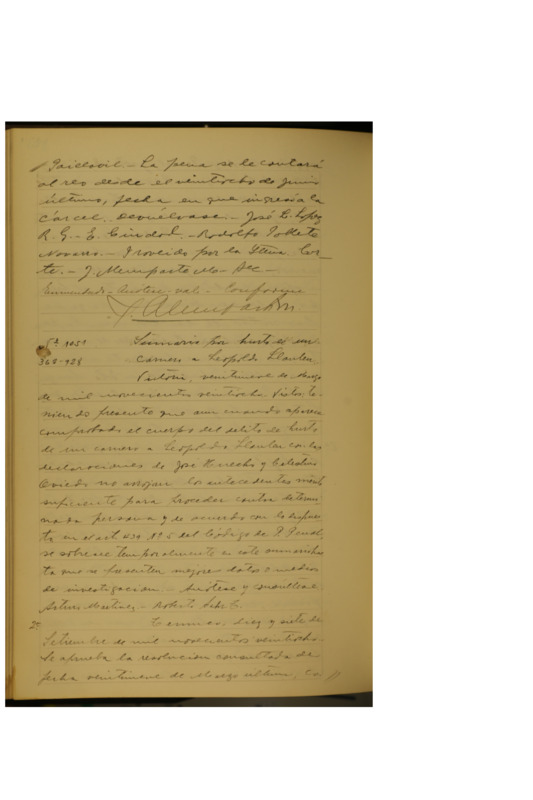 Gailsoil.- La pena se le contará
al reo desde el veintiocho de Junio
último, fecha en que ingresó a la
Cárcel. Devuélvase.- José L. López
R. G.- E. Ciudad.- Rodolfo Poblete
Navarro.- Proveído por la Iltma. Cor-
te.- J. Alemparte M.- Sec-
Enmendado - val - Conforme
J. Alemparte M.
1031
365-928
Sumario por hurto de un
carnero a Leopoldo Llanten.
Victoria, veintinueve de Marzo
de mil novecientos veintiocho. Vistos, te-
niendo presente que aun cuando aparece
comprobado el cuerpo del delito de hurto
de un carnero a Leopoldo Llanten con las
declaraciones de José y Celestino
Oviedo no arrojan los antecedentes mérito
suficiente para proceder contra determi-
nada persona y de acuerdo con lo dispues-
to en el art 439 Nº 5 del Código de P. Penal,
se sobresee temporalmente en este sumario has-
ta que se presenten mejores datos o medios
de investigación.- Anótese y consúltese
Arturo Martínez - Roberto
2ª
Temuco, diez y siete de
Setiembre de mil novecientos veintiocho.
Se aprueba la resolución consultada de
fecha veintinueve de Marzo último,